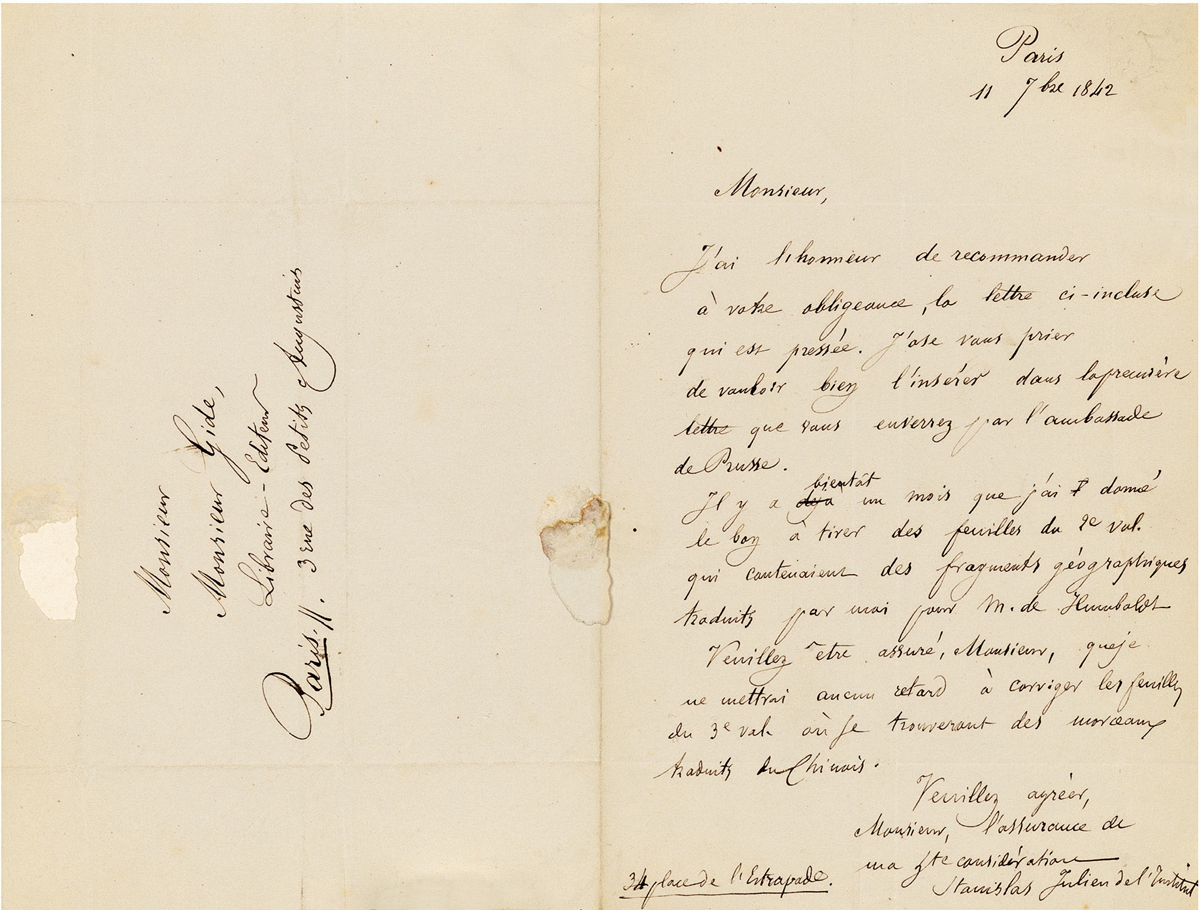 Monsieur
Monsieur Gide,
Libraire-Editeur
3 rue des Petits Augustins
Paris. //.
Paris
11 7bre 1842
Monsieur,
J'ai l'honneur de recommander
à votre obligeance, la lettre ci-incluse
qui est pressée. J'ose vous prier
de vouloir bien l'insérer dans la première
lettre que vous enverrez par l'ambassade
de Prusse.
Il y a déjà bientôt un mois que j'ai donné
le bon à tirer des feuilles du 2e vol.
qui contenaient des fragments géographiques
traduits par moi pour M. de Humboldt
Veuillez être assuré, Monsieur, que je
ne mettrai aucun retard à corriger les feuilles
du 3e vol. où se trouveront des morceaux
traduits du Chinois.
Veuillez agréer,
Monsieur, l'assurance de
ma hte considération
Stanislas Julien de l'Institut
34 place de l'Estrapade.